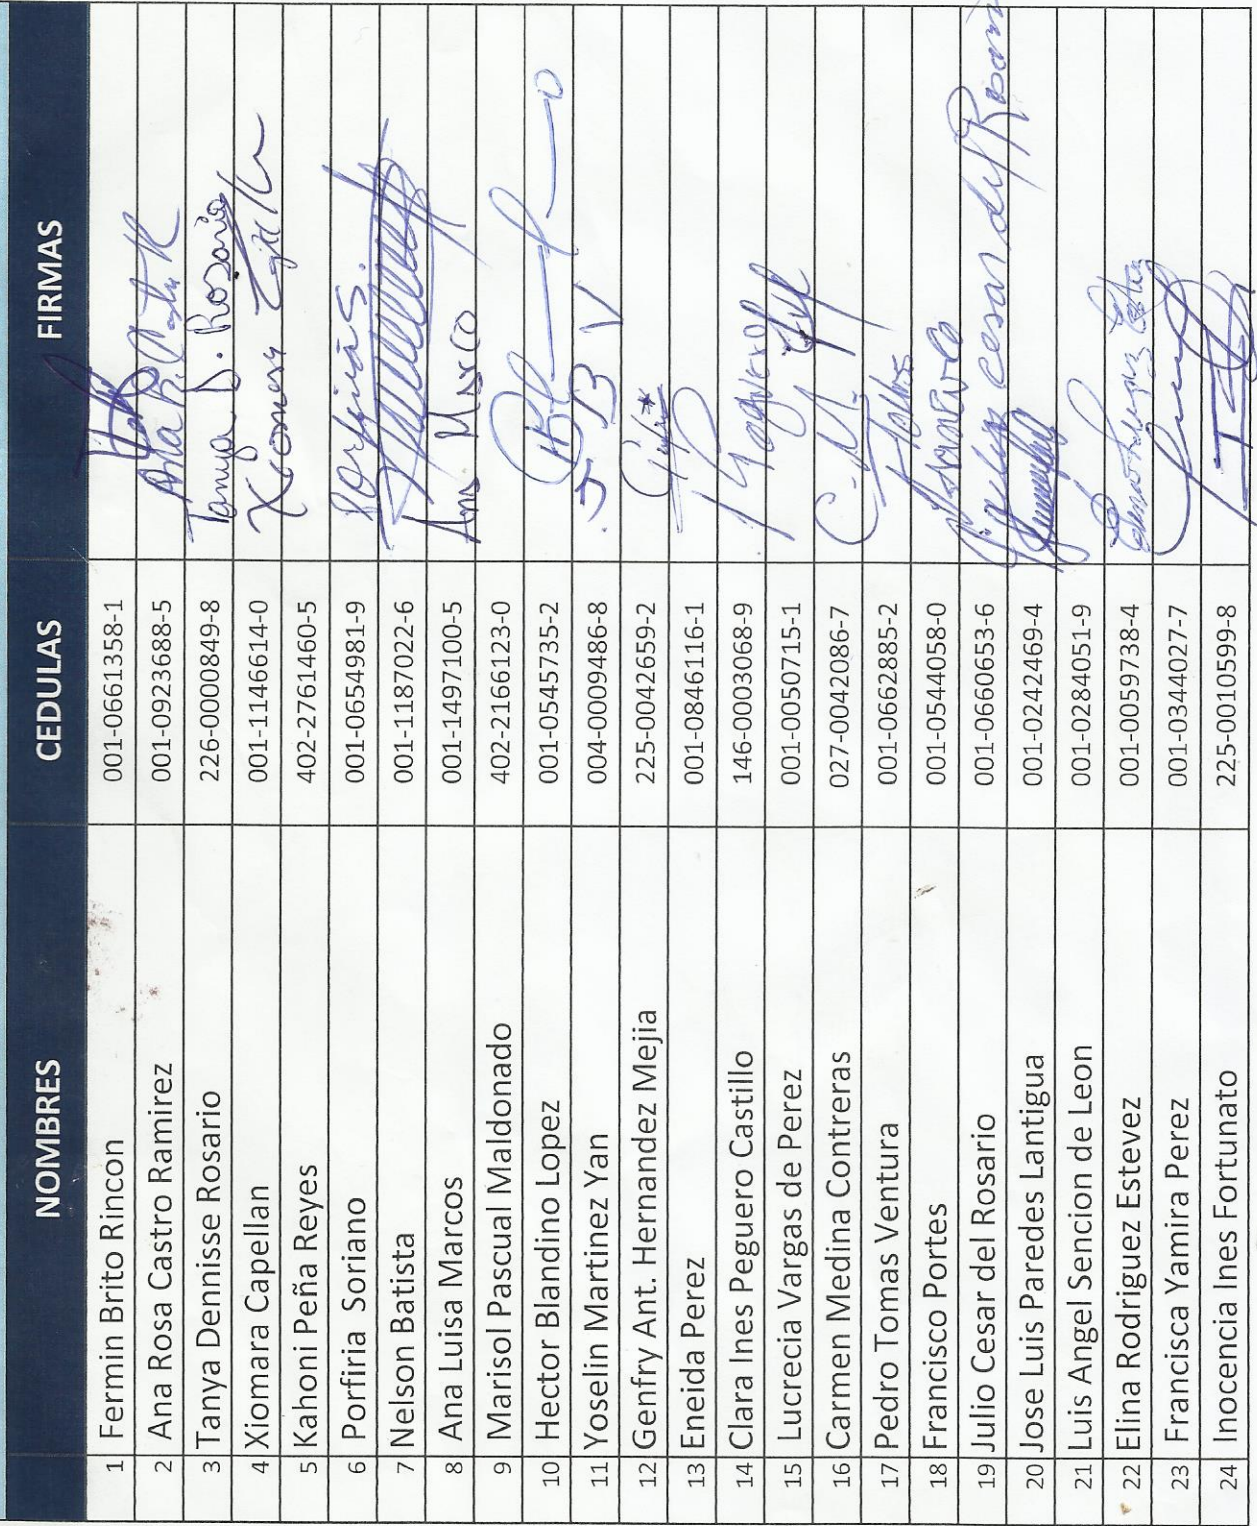 NOMBRES CEDULAS FIRMAS
1 Fermin Brito Rincon 001-0661358-1
2 Ana Rosa Castro Ramirez 001-0923688-5 Ana R. Castro R
3 Tanya Dennisse Rosario 226-0000849-8 Tanya D. Rosario
4 Xiomara Capellan 001-1146614-0
5 Kahoni Peña Reyes 402-2761460-5
6 Porfiria Soriano 001-0654981-9 Porfiria S.
7 Nelson Batista 001-1187022-6
8 Ana Luisa Marcos 001-1497100-5 Ana
9 Marisol Pascual Maldonado 402-2166123-0
10 Hector Blandino Lopez 001-0545735-2
11 Yoselin Martinez Yan 004-0009486-8
12 Genfry Ant. Hernandez Mejia 225-0042659-2
13 Eneida Perez 001-0846116-1
14 Clara Ines Peguero Castillo 146-0003068-9
15 Lucrecia Vargas de Perez 001-0050715-1
16 Carmen Medina Contreras 027-0042086-7 C. M.
17 Pedro Tomas Ventura 001-0662885-2
18 Francisco Portes 001-0544058-0
19 Julio Cesar del Rosario 001-0660653-6 cesar del Rosario
20 Jose Luis Paredes Lantigua 001-0242469-4
21 Luis Angel Sencion de Leon 001-0284051-9
22 Elina Rodriguez Estevez 001-0059738-4
23 Francisca Yamira Perez 001-0344027-7
24 Inocencia Ines Fortunato 225-0010599-8